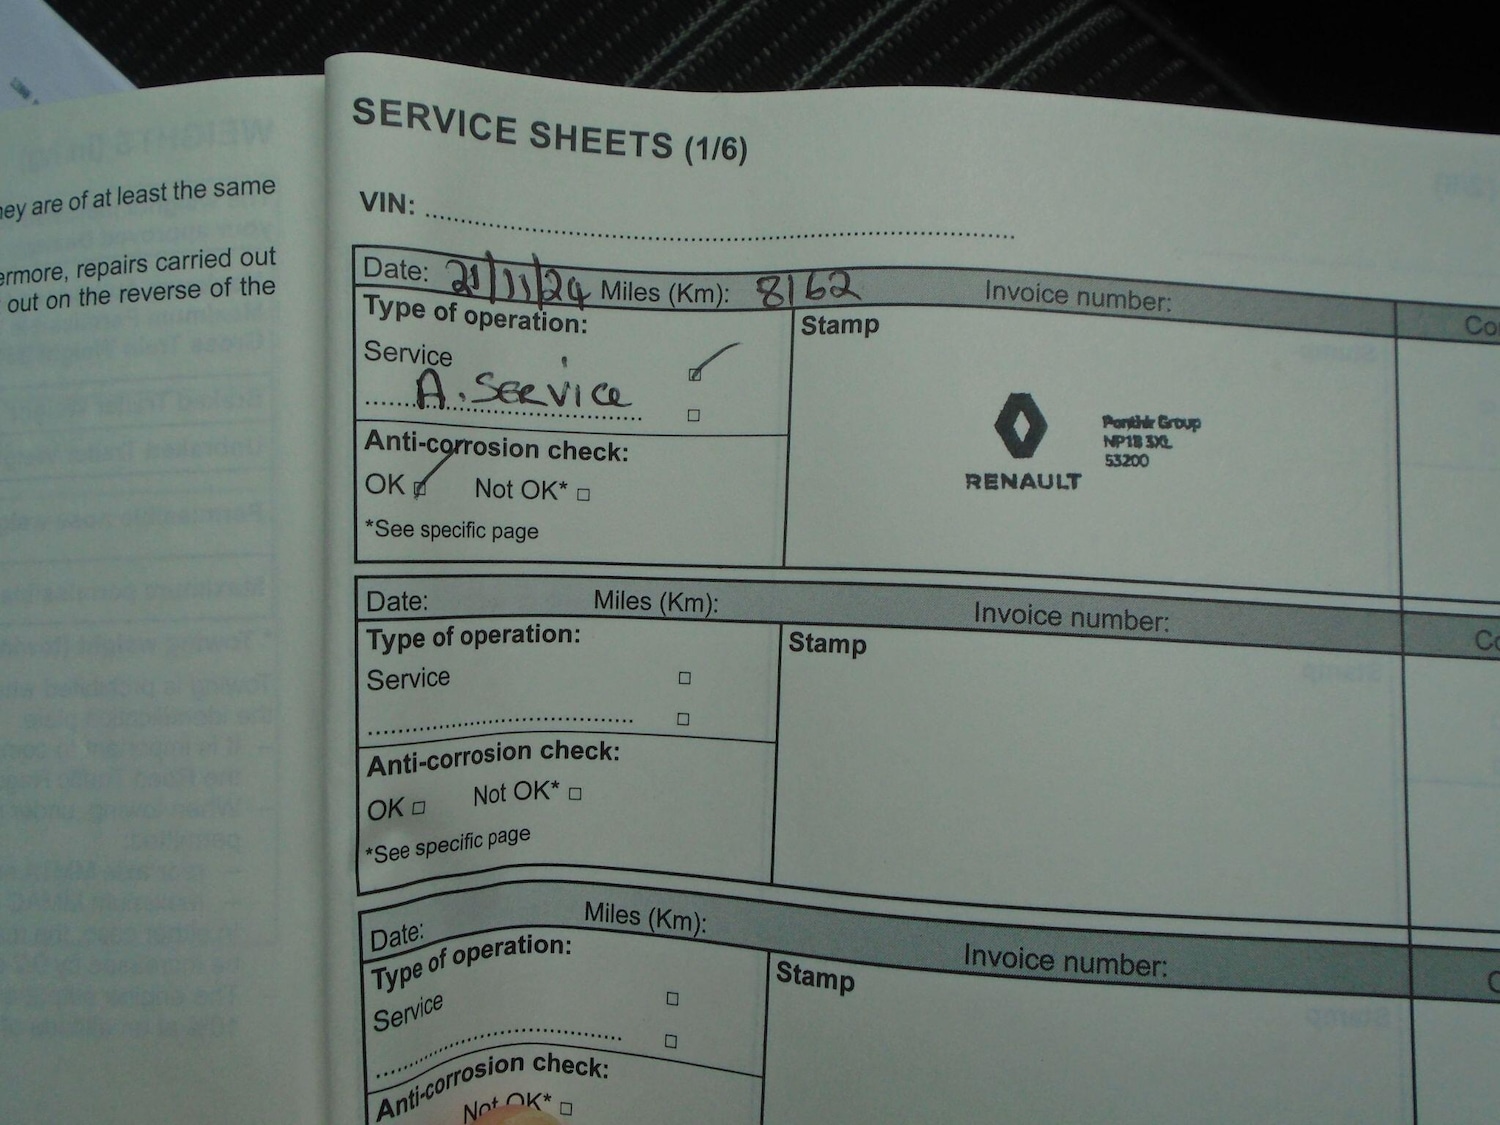 hey are of at least the same
ermore, repairs carried out
out on the reverse of the
SERVICE SHEETS (1/6)
VIN:
Date: 21/11/24 Miles (Km): 8162 Invoice number: Co
Type of operation:
Service
A. Service
Anti-corrosion check:
OK Not OK*
*See specific page
Stamp
RENAULT
Ponthir Group
NP18 3XL
53200
Date: Miles (Km): Invoice number: Co
Type of operation:
Service
Anti-corrosion check:
OK Not OK*
*See specific page
Stamp
Date: Miles (Km): Invoice number: C
Type of operation:
Service
Anti-corrosion check:
Not OK*
Stamp